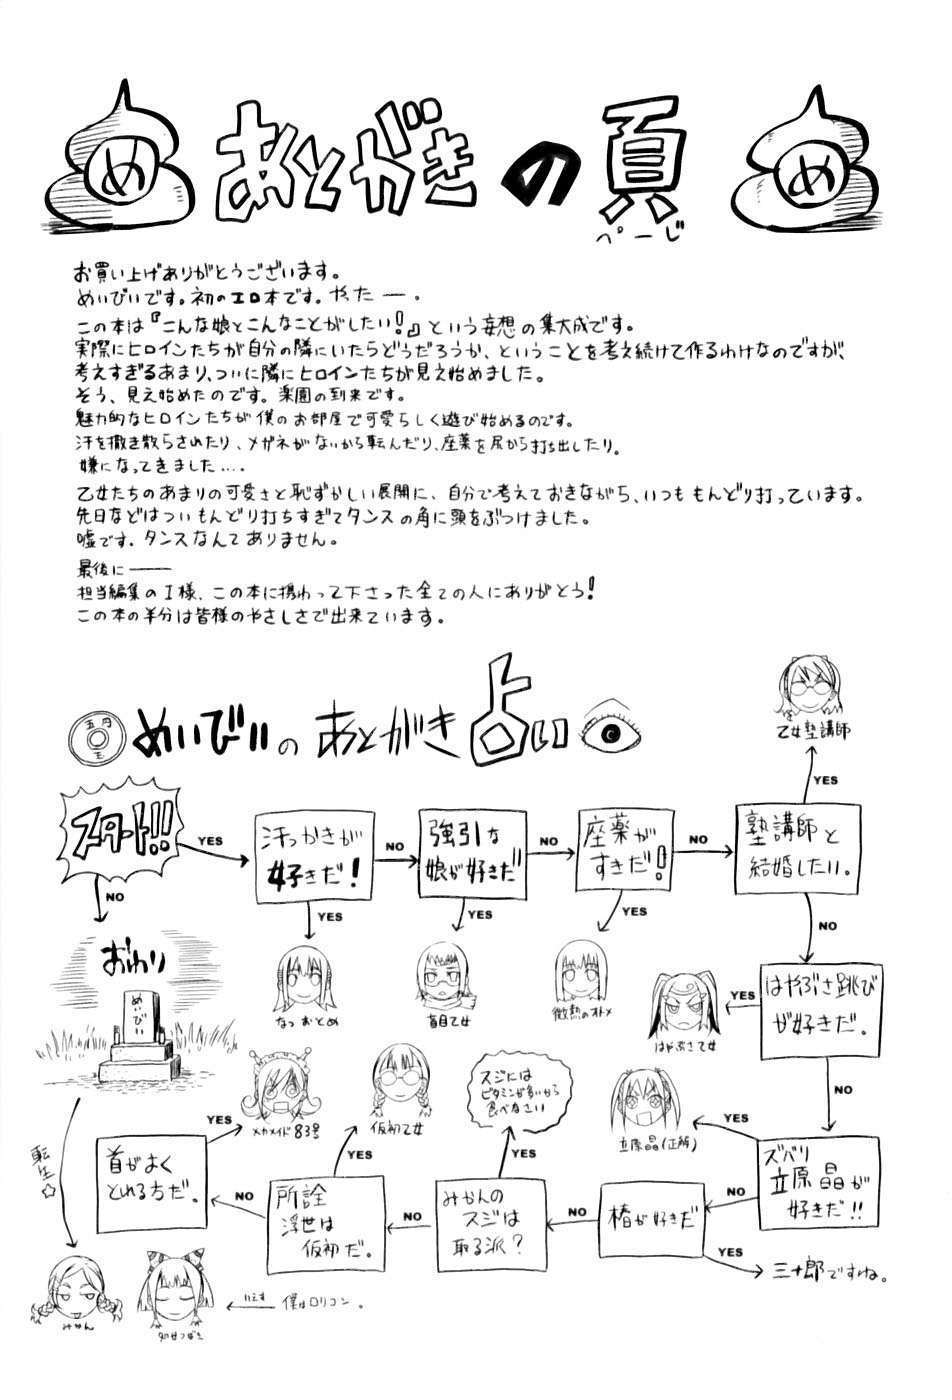 め
あとがきの頁
ぺーじ
め
お買い上げありがとうございます。
めいびいです。初のエロ本です。やったー。
この本は『こんな娘とこんなことがしたい!』という妄想の集大成です。
実際にヒロインたちが自分の隣にいたらどうだろうか、ということを考え続けて作るわけなのですが、
考えすぎるあまり、ついに隣にヒロインたちが見え始めました。
そう、見え始めたのです。楽園の到来です。
魅力的なヒロインたちが僕のお部屋で可愛らしく遊び始めるのです。
汗を撒き散らされたり、メガネがないから転んだり、座薬を尻から打ち出したり。
嫌になってきました….
乙女たちのあまりの可愛さと恥ずかしい展開に、自分で考えておきながら、いつももんどり打っています。
先日などはついもんどり打ちすぎてタンスの角に頭をぶつけました。
嘘です。タンスなんてありません。
最後に――
担当編集のI様、この本に携わって下さった全ての人にありがとう!
この本の半分は皆様のやさしさで出来ています。
五円
めいびいのあとがき占い
乙女塾講師
YES
スタート!!
YES
汗っかきが
好きだ!
NO
強引な
娘が好きだ
NO
座薬が
すきだ!
NO
塾講師と
結婚したい。
NO
YES
YES
YES
NO
おわり
めいびい
なつおとめ
盲目乙女
微熱のオトメ
はやぶさ乙女
YES
はやぶさ跳び
が好きだ。
NO
転生☆
首がよく
とれる方だ。
YES
メカメイド83号
仮初乙女
YES
スジには
ビタミンが多いから
食べなさい
YES
立原晶(正解)
YES
ズバリ
立原晶が
好きだ!!
NO
所詮
浮世は
仮初だ。
NO
みかんの
スジは
取る派?
NO
椿が好きだ
NO
YES
三十郎ですね。
みかん
僕はロリコン。